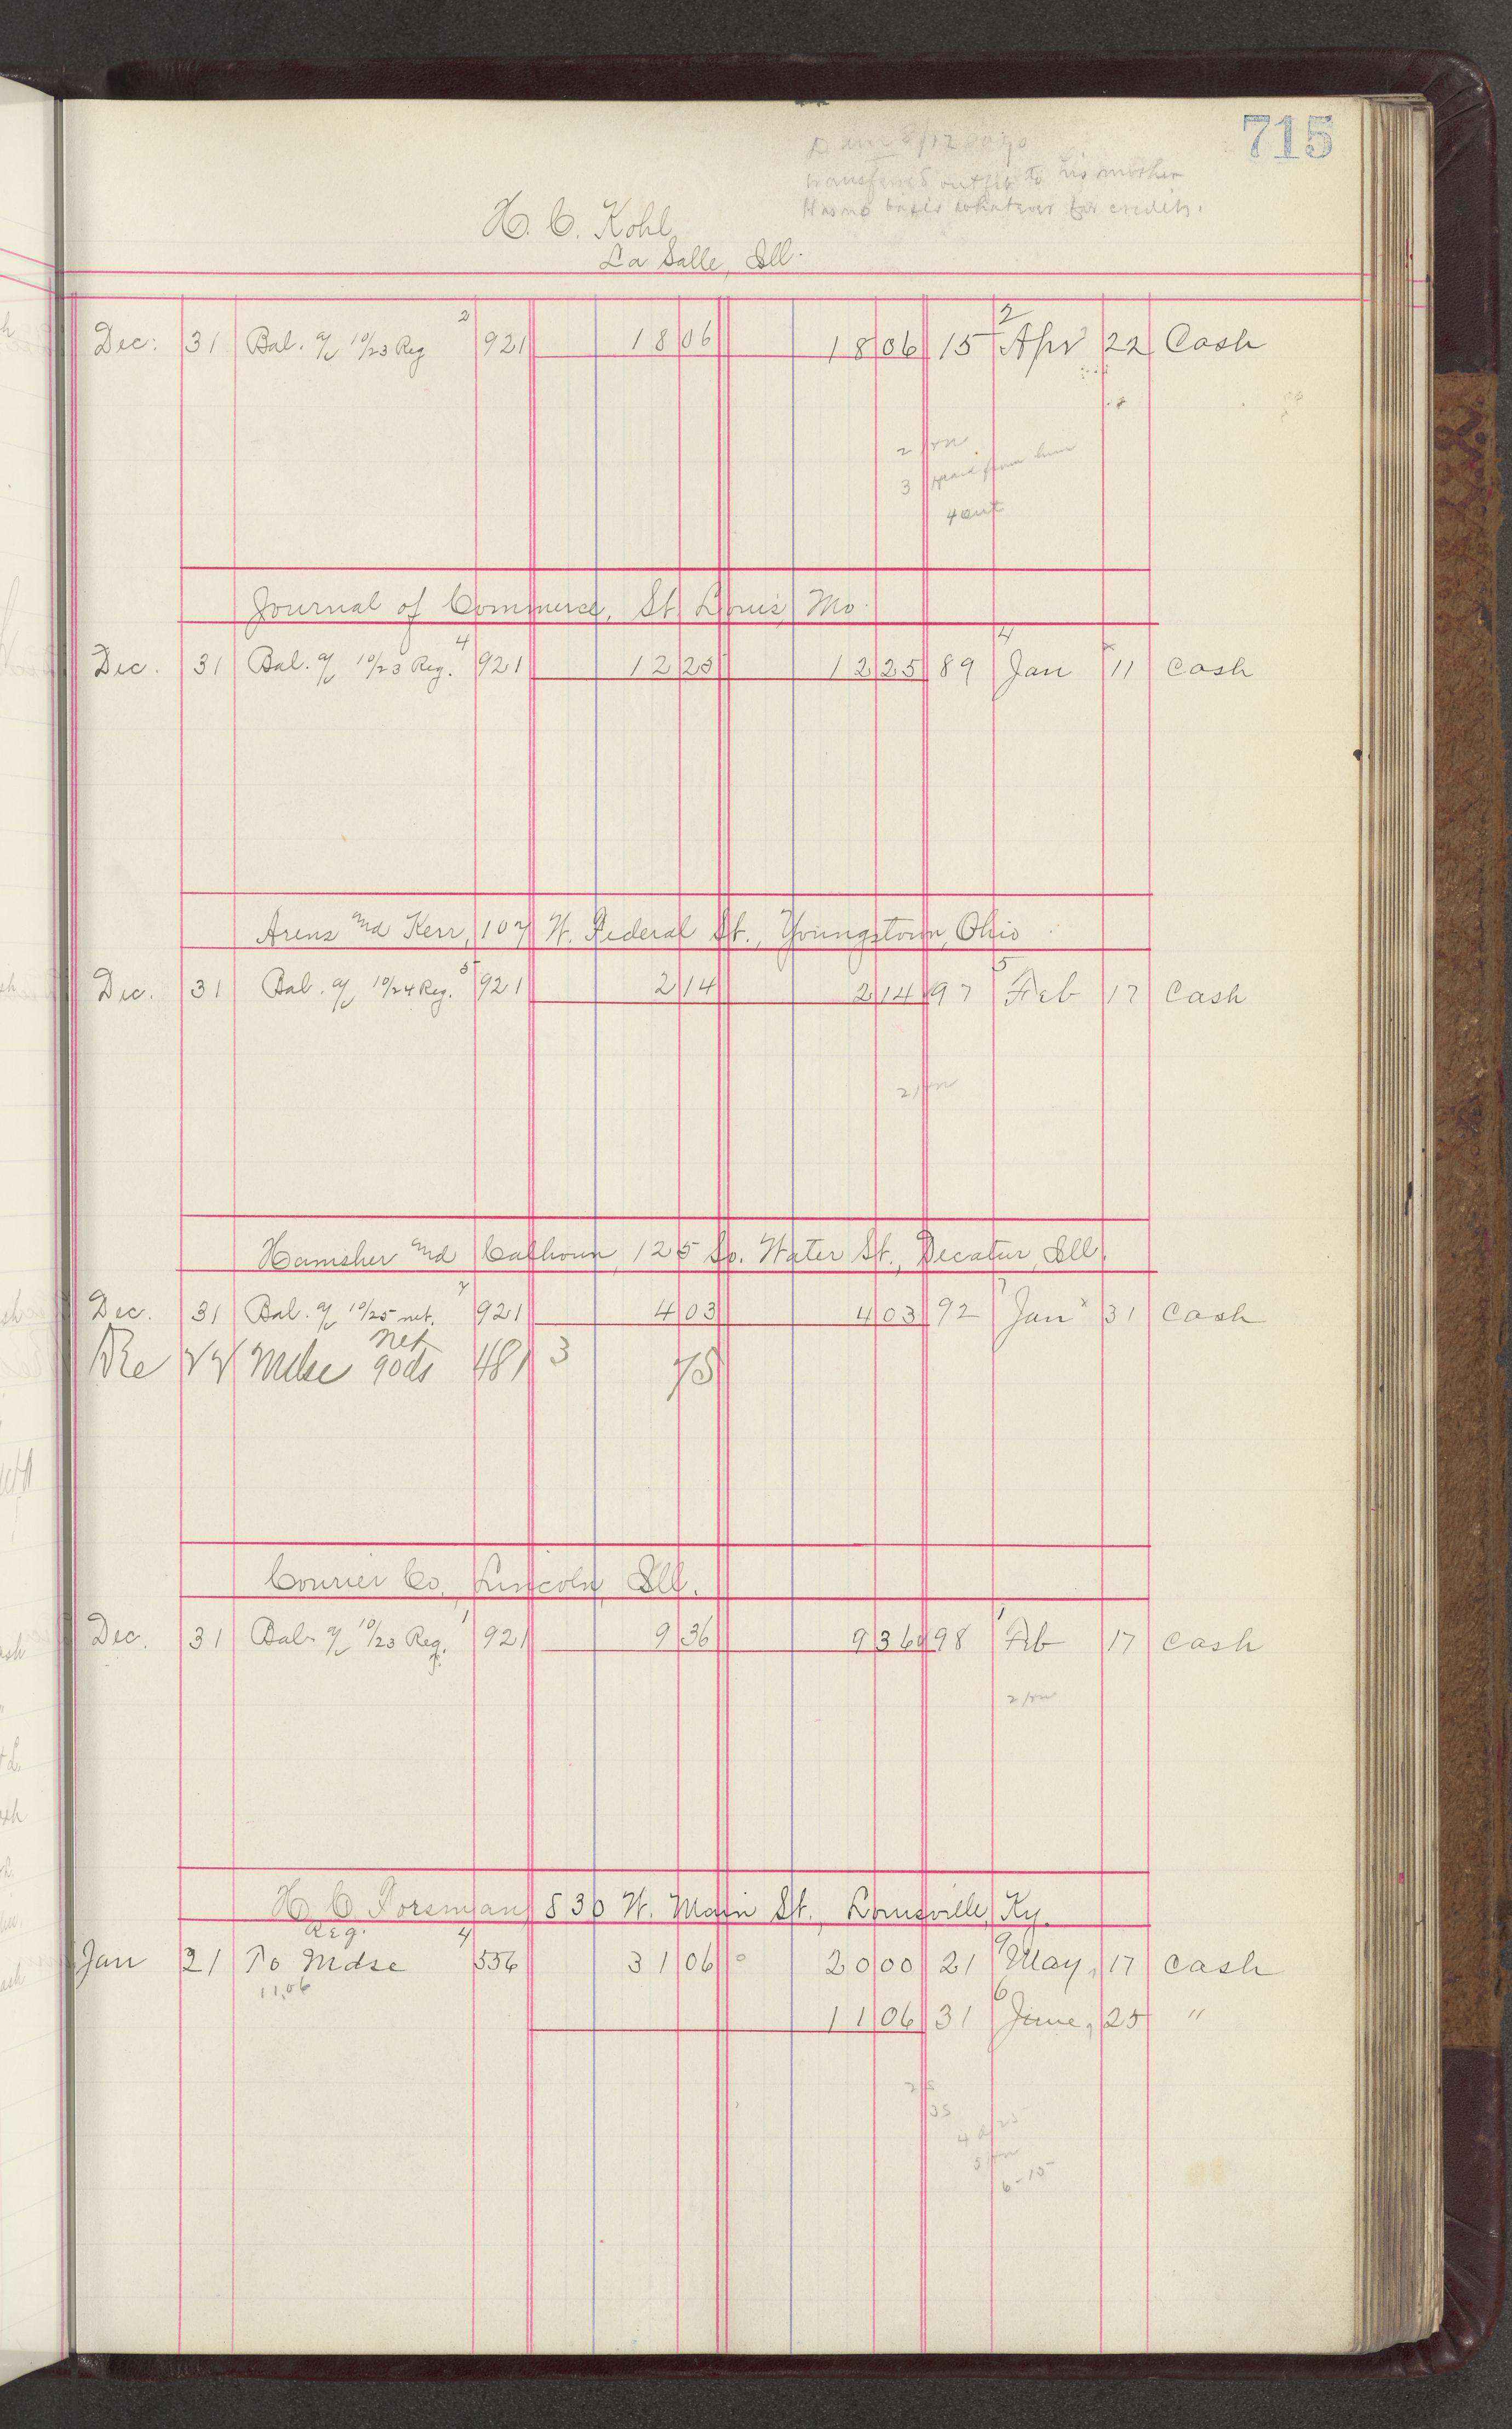 715
transferred outfit to his mother
Has no basis whatever for credit.
H. C. Kohl
La Salle, Ill.
Dec. 31 Bal. a/c 10/23 Reg 2 921 18 06 18 06 15 2 Apr 22 Cash
2
3 from him
4 out
Journal of Commerce, St Louis, Mo.
Dec. 31 Bal. a/c 10/23 Reg. 4 921 12 25 12 25 89 4 Jan 11 Cash
Arens and Kerr, 107 W. Federal St., Youngstown, Ohio
Dec. 31 Bal. a/c 10/24 Reg. 5 921 2 14 2 14 97 5 Feb 17 Cash
2
Hamsher and Calhoun, 125 So. Water St., Decatur, Ill.
Dec. 31 Bal. a/c 10/25 net. 7 921 4 03 4 03 92 7 Jan x 31 Cash
net
Mdse 90ds 481 3 75
Courier Co., Lincoln, Ill.
Dec. 31 Bal a/c 10/23 Reg. 1 921 9 36 9 36 98 1 Feb 17 Cash
2
H. C. Forsman 830 W. Main St., Louisville, Ky.
Reg.
Jan 21 To Mdse 4 556 31 06 20 00 21 May, 17 Cash
11.06
11 06 31 6 June, 25 "
6-15